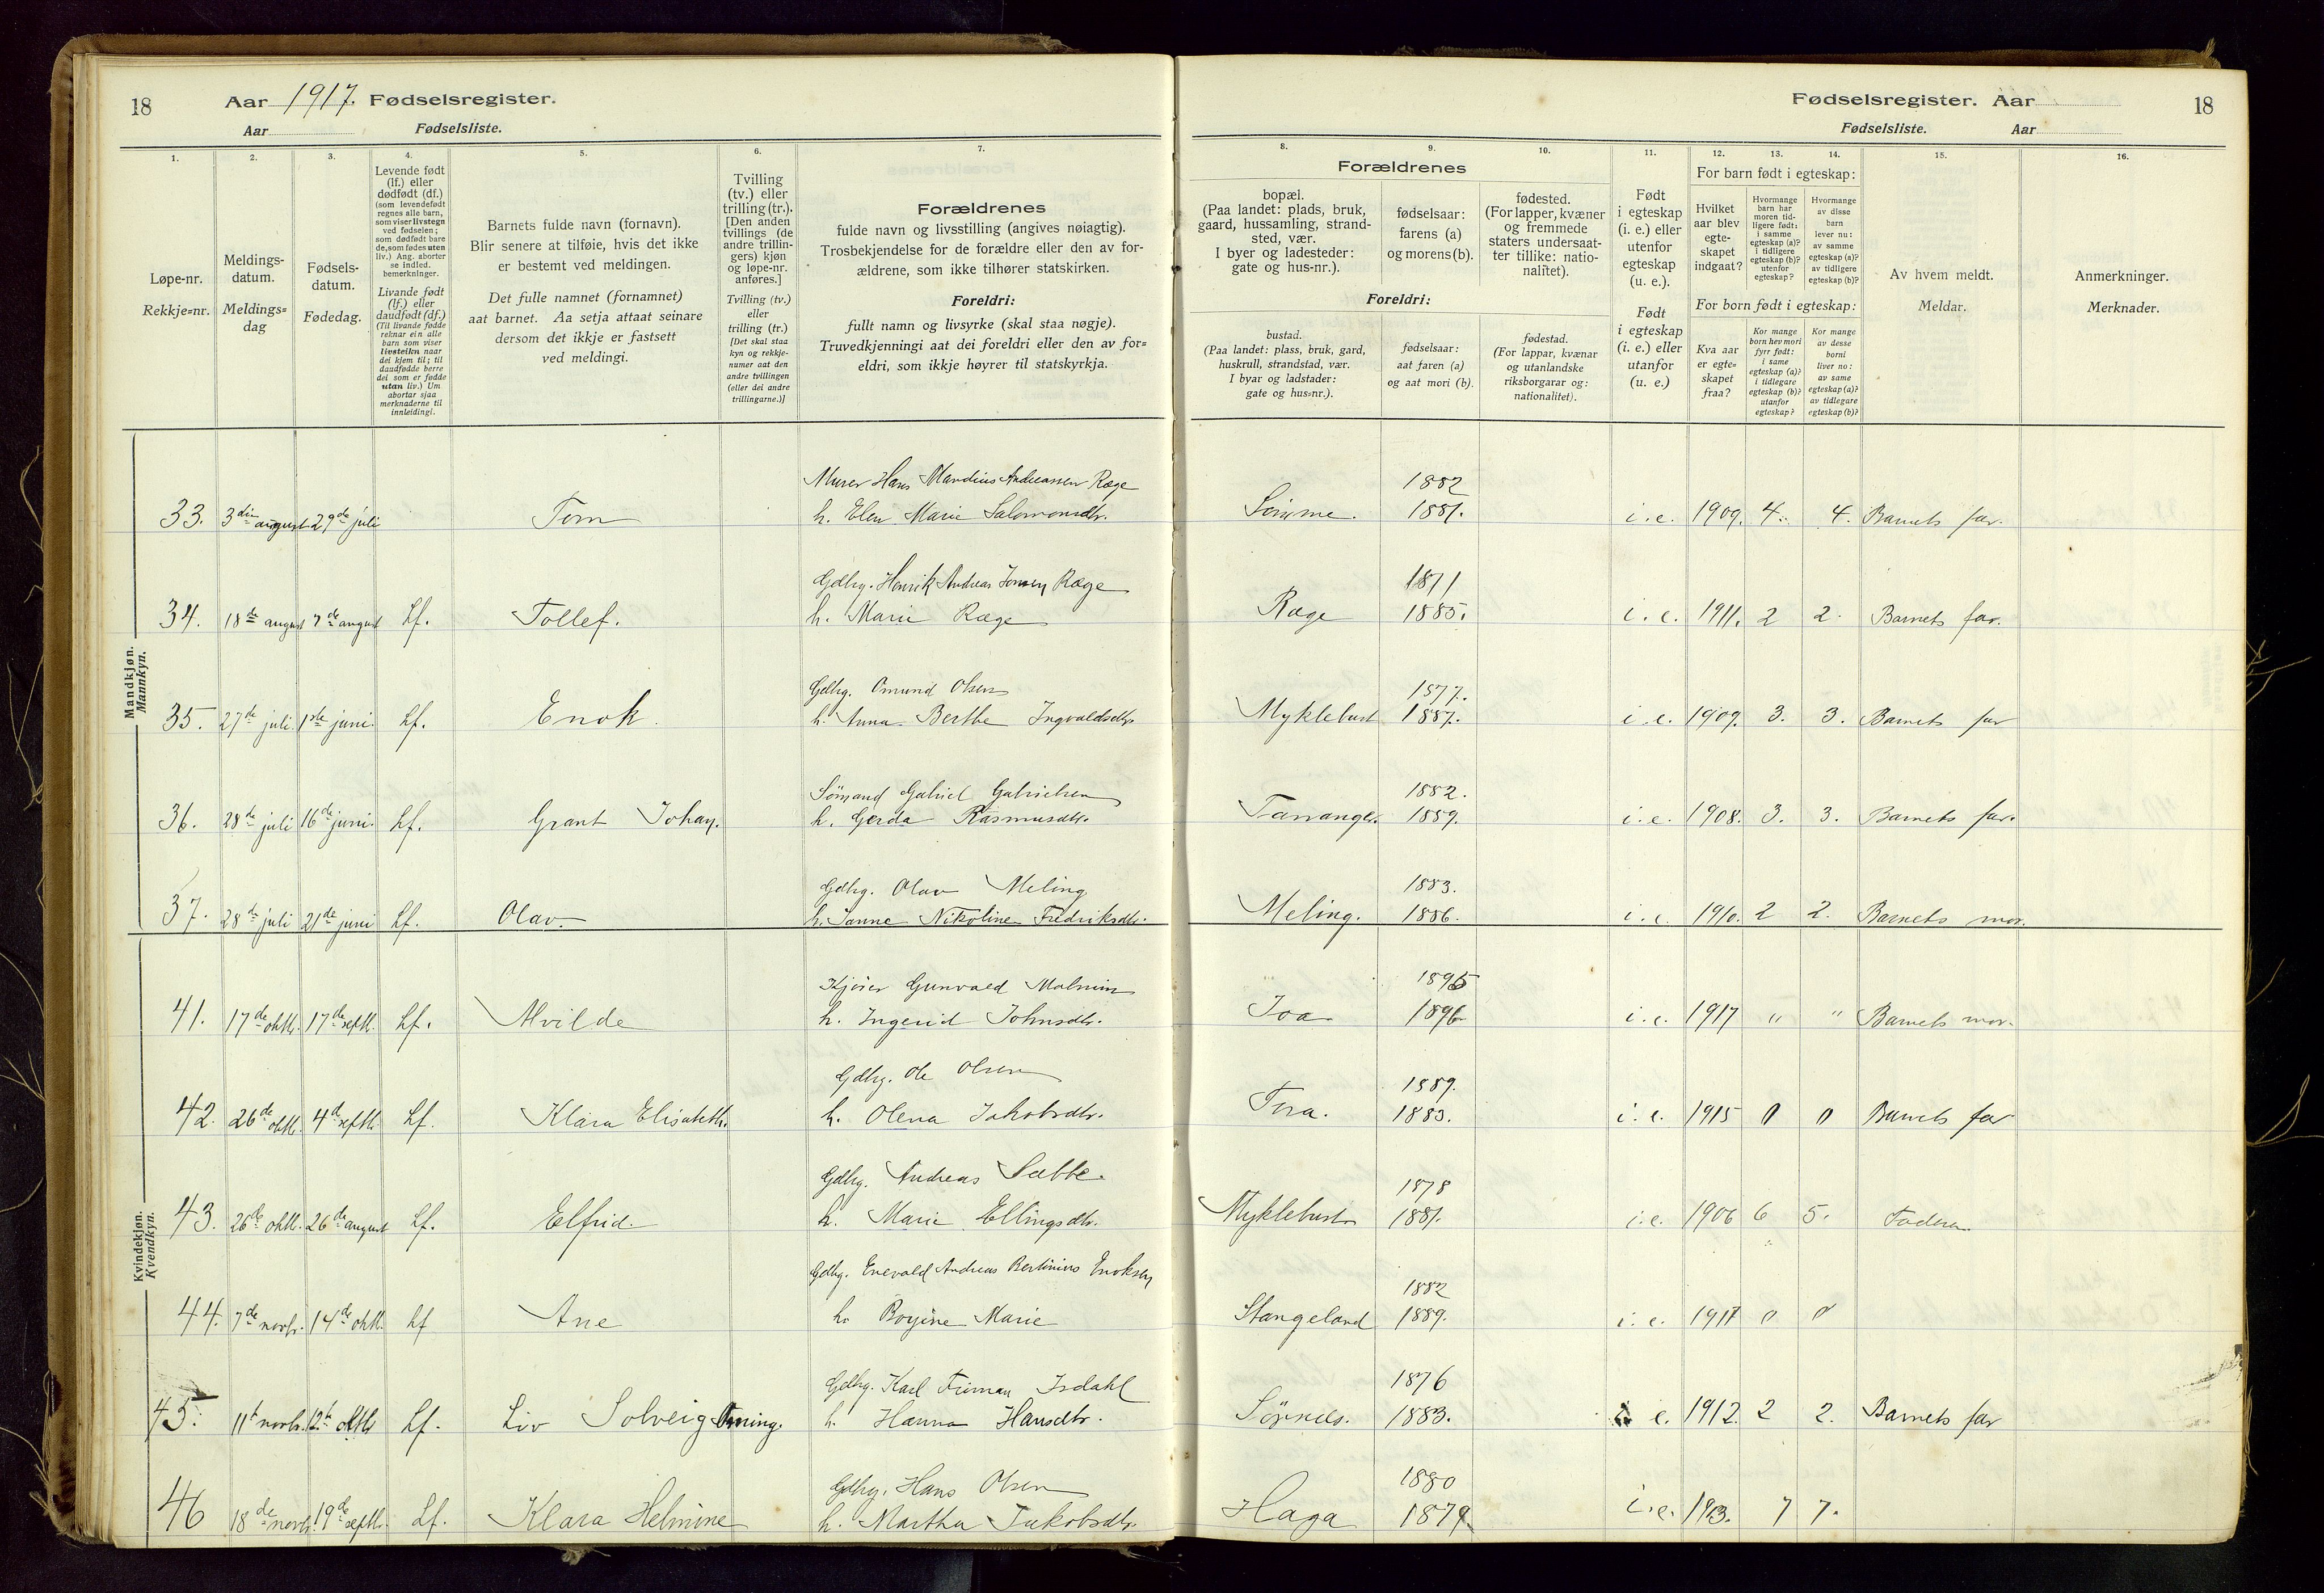 18 Aar 1917. Fødselsregister.
Aar Fødselsliste.
Fødselsregister. Aar 18
Fødselsliste. Aar
1. 2. 3. 4. 5. 6. 7. 8. 9. 10. 11. 12. 13. 14. 15. 16.
Løpe-nr.
Rekkje=nr.
Meldings-
datum.
Meldings=
dag
Fødsels-
datum.
Fødedag.
Levende født
(lf.) eller
dødfødt (df.)
(som levendefødt
regnes alle barn,
som viser livstegn
ved fødselen;
som dødfødt bare
de, som fødes uten
liv.) Ang. aborter
se indled.
bemerkninger.
Livande født
(lf.) eller
daudfødt (df.)
(Til livande fødde
reknar ein alle
barn som viser
livsteikn naar
dei kjem til; til
daudfødde berre
dei som er fødde
utan liv.) Um
abortar sjaa
merknaderne til
innleidingi.
Barnets fulde navn (fornavn).
Blir senere at tilføie, hvis det ikke
er bestemt ved meldingen.
Det fulle namnet (fornamnet)
aat barnet. Aa setja attaat seinare
dersom det ikkje er fastsett
ved meldingi.
Tvilling
(tv.) eller
trilling (tr.).
[Den anden
tvillings (de
andre trillin-
gers) kjøn
og løpe-nr.
anføres.]
Tvilling (tv.)
eller
trilling (tr.)
[Det skal staa
kyn og rekkje-
numer aat den
andre tvillingen
(eller dei andre
trillingarne.)]
Forældrenes
fulde navn og livsstilling (angives nøiagtig).
Trosbekjendelse for de forældre eller den av for-
ældrene, som ikke tilhører statskirken.
Foreldri:
fullt namn og livsyrke (skal staa nøgje).
Truvedkjenningi aat dei foreldri eller den av for=
eldri, som ikkje høyrer til statskyrkja.
Forældrenes
bopæl.
(Paa landet: plads, bruk,
gaard, hussamling, strand-
sted, vær.
I byer og ladesteder:
gate og hus-nr.).
fødselsaar:
farens (a)
og morens (b).
fødested.
(For lapper, kvæner
og fremmede
staters undersaat-
ter tillike: natio-
nalitet).
Foreldri:
bustad.
(Paa landet: plass, bruk, gard,
huskrull, strandstad, vær.
I byar og ladstader:
gate og hus=nr.).
fødselsaar:
aat faren (a)
og aat mori (b).
fødestad.
(For lappar, kvænar
og utanlandske
riksborgarar og:
nationalitet).
Født
i egteskap
(i. e.) eller
utenfor
egteskap
(u. e.).
Født
i egteskap
(i. e.) eller
utanfor
(u. e.)
For barn født i egteskap:
Hvilket
aar blev
egte-
skapet
indgaat?
Hvormange
barn har
moren tid-
ligere født:
i samme
egteskap (a)?
i tidligere
egteskap (b)?
utenfor
egteskap?
Hvormange
av disse
barn
lever nu:
av samme
egteskap (a)?
av tidligere
egteskap (b)?
For born født i egteskap:
Kva aar
er egte=
skapet
fraa?
Kor mange
born hev mori
fyrr født:
i same
egteskap (a)?
i tidlegare
egteskap (b)?
utanfor
egteskap?
Kor mange
av desse
borni
liver no:
av same
egteskap (a)?
av tidlegare
egteskap (b)?
Av hvem meldt.
Meldar.
Anmerkninger.
Merknader.
Mandkjøn.
Mannkyn.
Murer Hans Mandius Andreassen Ræge 1882
33. 3die august 29de juli Tom h. Elen Marie Salomonsdtr. Sømme. 1881. i. e. 1909. 4. 4. Barnets far.
Gdbrg. Henrik Andreas Jonsen Ræge 1871
34. 18de august 7de august Lf. Tollef. h. Marie Ræge Ræge 1885. i. e. 1911. 2 2. Barnets far.
Gdbrg. Omund Olsen 1877.
35. 27de juli 1ste juni. Lf. Enok. h. Anna Berthe Ingvaldsdtr. Myklebust 1887. i. e. 1909. 3. 3. Barnets far
Sömand Gabriel Gabrielsen 1882.
36. 28de juli 16de juni. Lf. Grant Johan. h. Gerda Rasmusdtr. Tananger. 1889. i. e. 1908. 3. 3. Barnets far.
Gdbrg. Olav Meling 1883.
37. 28de juli 21de juni Lf. Olav. h. Janne Nikoline Fredriksdtr. Meling. 1886. i. e. 1910. 2 2. Barnets mor.
Kvindekjøn.
Kvendkyn.
Gunvald Malmin 1895
41. 17de oktb. 17de septb. Lf. Alvilde h. Ingerid Johnsdtr. Joa 1896 i. e. 1917 " " Barnets mor.
Gdbrg. Ole Olsen 1889.
42. 26de oktb. 4de septb. Lf. Klara Elisabeth. h. Olena Jakobsdtr. Tora. 1883. i. e. 1915 0 0 Barnets far
Gdbrg. Andreas Sæbbe. 1878
43. 26de oktb. 26de august Lf. Elfrid. h. Marie Ellingsdtr. Myklebust 1881. i. e. 1906 6 5. Faderen
Gdbrg. Enevald Andreas Bertinius Enoksen 1882
44. 7de novbr. 14de oktb. Lf Ane h. Borgine Marie Stangeland 1889. i. e. 1917 0 0
Gdbrg. Karl Friman Isdahl 1876
45. 11t novbr. 12t oktb Lf. Liv Solveig h. Hanna Hansdtr. Sörnes. 1883. i. e. 1912. 2 2. Barnets far
Gdbrg. Hans Olsen 1880
46 18de novbr. 19de septb. Lf. Klara Helmine h. Martha Jakobsdtr. Haga 1879 i. e. 1903. 7 7.